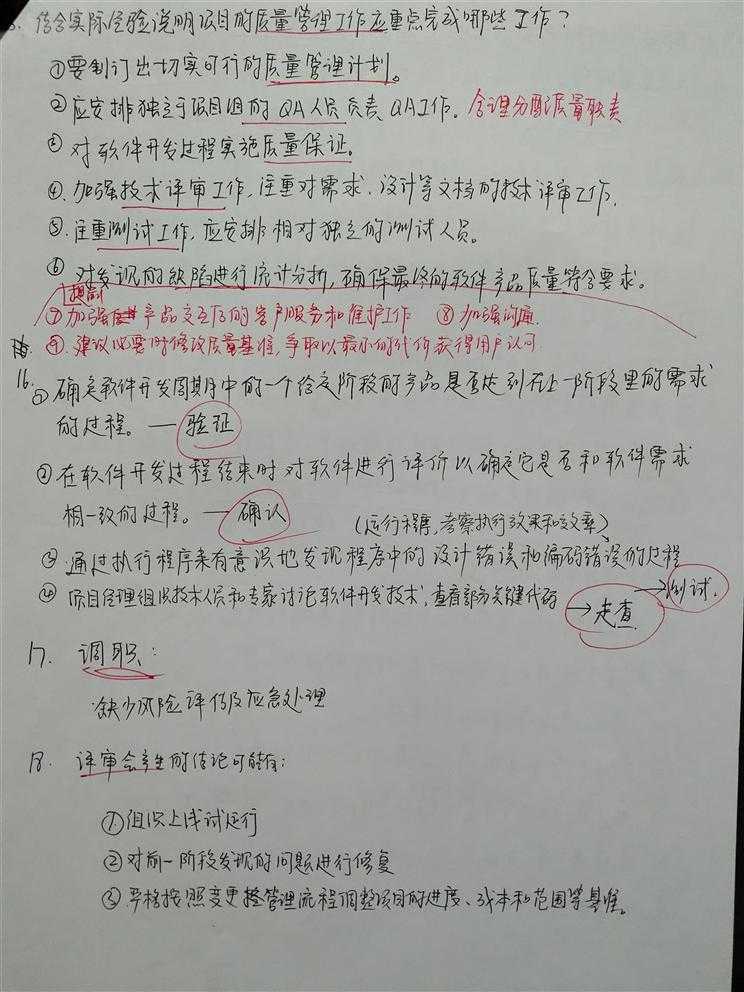 结合实际经验说明项目的质量管理工作应重点完成哪些工作？
①要制订出切实可行的质量管理计划。
②应安排独立于项目组的QA人员负责QA工作。合理分配质量职责
③对软件开发过程实施质量保证。
④加强技术评审工作，注重对需求、设计等文档的技术评审工作。
⑤注重测试工作，应安排相对独立的测试人员。
⑥对发现的缺陷进行统计分析，确保最终的软件产品质量符合要求。
提前
⑦加强产品交互后的客户服务和维护工作 ⑧加强沟通
⑨建议必要时修改质量基准，争取以最小的代价获得用户认可
16.①确定软件开发周期中的一个给定阶段的产品是否达到在上一阶段里的需求
的过程。—验证
②在软件开发过程结束时对软件进行评价以确定它是否和软件需求
相一致的过程。—确认
(运行程序，考察执行效果和效率)
③通过执行程序来有意识地发现程序中的设计错误和编码错误的过程
→测试.
④项目经理组织技术人员和专家讨论软件开发技术，查看部分关键代码→走查.
17. 调职：
缺少风险评估及应急处理
18. 评审会产生的结论可能有：
①组织上线试运行
②对前一阶段发现的问题进行修复
③严格按照变更管理流程调整项目的进度、成本和范围等基准。